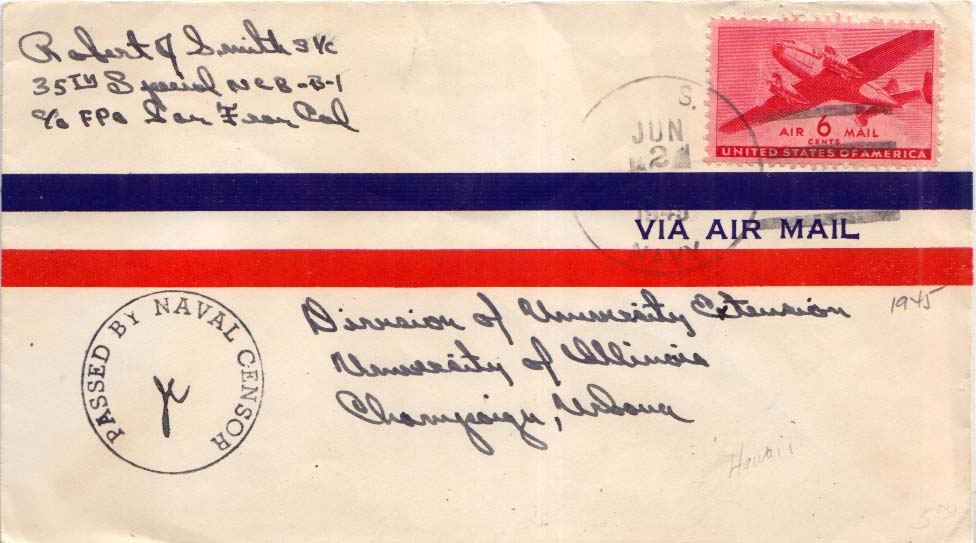 Robert J Smith S 1/c
35TH Special NCB-B-1
c/o FPO San Fran Cal
AIR 6 MAIL
CENTS
UNITED STATES OF AMERICA
S.
JUN
2
1945
NAVY
VIA AIR MAIL
1945
PASSED BY NAVAL CENSOR
Division of University Extension
University of Illinois
Champaign, Urbana
'Hawaii'
500